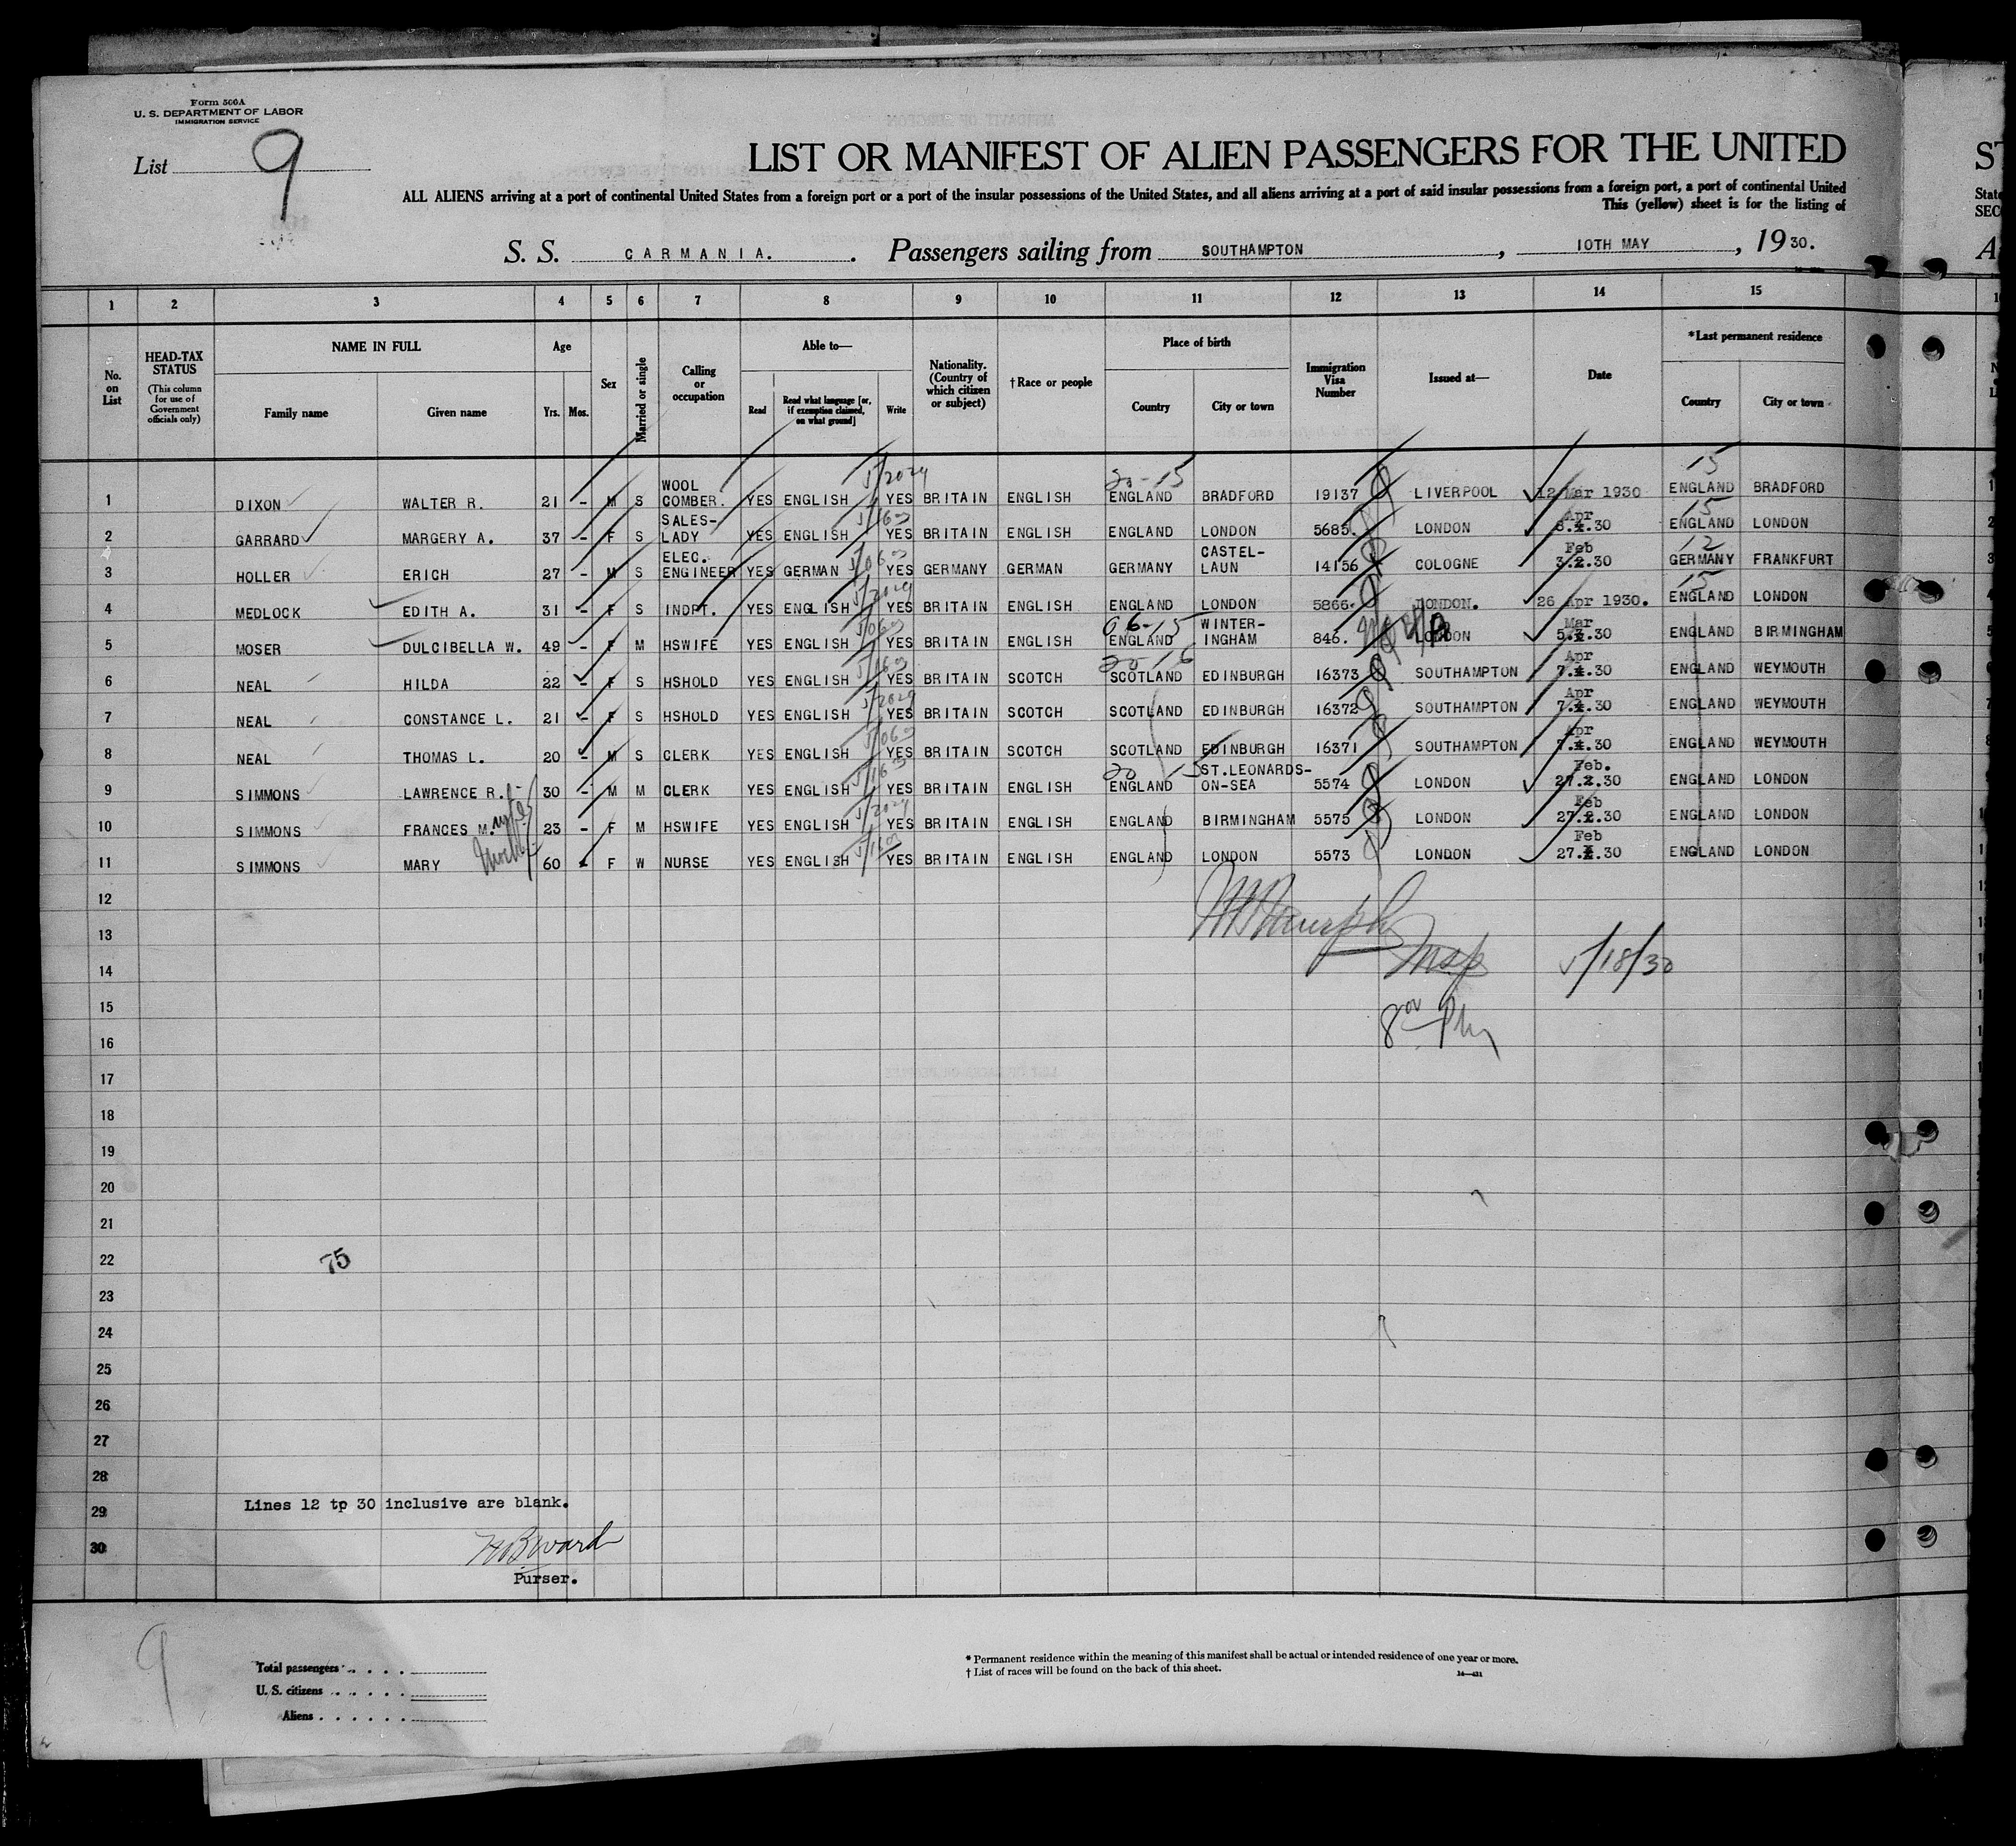 Form 500A
U. S. DEPARTMENT OF LABOR
IMMIGRATION SERVICE
List 9
LIST OR MANIFEST OF ALIEN PASSENGERS FOR THE UNITED
ALL ALIENS arriving at a port of continental United States from a foreign port or a port of the insular possessions of the United States, and all aliens arriving at a port of said insular possessions from a foreign port, a port of continental United
This (yellow) sheet is for the listing of
S. S. CARMANIA. Passengers sailing from SOUTHAMPTON, 10TH MAY, 1930.
1 2 3 4 5 6 7 8 9 10 11 12 13 14 15
No. on List
HEAD-TAX STATUS (This column for use of Government officials only)
NAME IN FULL Family name Given name
Age Yrs. Mos.
Sex
Married or single
Calling or occupation
Able to— Read Read what language [or, if exemption claimed, on what ground] Write
Nationality. (Country of which citizen or subject)
†Race or people
Place of birth Country City or town
Immigration Visa Number
Issued at—
Date
*Last permanent residence Country City or town
1 DIXON WALTER R. 21 - M S WOOL COMBER. YES ENGLISH YES BRITAIN ENGLISH 20-15 ENGLAND BRADFORD 19137 LIVERPOOL 12 Mar 1930 15 ENGLAND BRADFORD
2 GARRARD MARGERY A. 37 - F S SALES-LADY YES ENGLISH YES BRITAIN ENGLISH ENGLAND LONDON 5685. LONDON Apr 8.4.30 15 ENGLAND LONDON
3 HOLLER ERICH 27 - M S ELEC. ENGINEER YES GERMAN YES GERMANY GERMAN GERMANY CASTEL-LAUN 14156 COLOGNE Feb 3.2.30 12 GERMANY FRANKFURT
4 MEDLOCK EDITH A. 31 - F S INDPT. YES ENGLISH YES BRITAIN ENGLISH ENGLAND LONDON 5866. LONDON. 26 Apr 1930. 15 ENGLAND LONDON
5 MOSER DULCIBELLA W. 49 - F M HSWIFE YES ENGLISH YES BRITAIN ENGLISH 06-15 ENGLAND WINTER-INGHAM 846. LONDON Mar 5.3.30 ENGLAND BIRMINGHAM
6 NEAL HILDA 22 - F S HSHOLD YES ENGLISH YES BRITAIN SCOTCH 20 16 SCOTLAND EDINBURGH 16373 SOUTHAMPTON Apr 7.4.30 ENGLAND WEYMOUTH
7 NEAL CONSTANCE L. 21 - F S HSHOLD YES ENGLISH YES BRITAIN SCOTCH SCOTLAND EDINBURGH 16372 SOUTHAMPTON Apr 7.4.30 ENGLAND WEYMOUTH
8 NEAL THOMAS L. 20 - M S CLERK YES ENGLISH YES BRITAIN SCOTCH SCOTLAND EDINBURGH 16371 SOUTHAMPTON Apr 7.4.30 ENGLAND WEYMOUTH
9 SIMMONS LAWRENCE R. 30 - M M CLERK YES ENGLISH YES BRITAIN ENGLISH 20 15 ENGLAND ST.LEONARDS-ON-SEA 5574 LONDON Feb. 27.2.30 ENGLAND LONDON
10 SIMMONS FRANCES M. 23 - F M HSWIFE YES ENGLISH YES BRITAIN ENGLISH ENGLAND BIRMINGHAM 5575 LONDON Feb 27.2.30 ENGLAND LONDON
11 SIMMONS MARY 60 - F W NURSE YES ENGLISH YES BRITAIN ENGLISH ENGLAND LONDON 5573 LONDON Feb 27.2.30 ENGLAND LONDON
12
13
14 Insp 5/18/30
15
16
17
18
19
20
21
22 75
23
24
25
26
27
28
29 Lines 12 to 30 inclusive are blank.
30 HBWard
Purser.
9
Total passengers
U. S. citizens
Aliens
* Permanent residence within the meaning of this manifest shall be actual or intended residence of one year or more.
† List of races will be found on the back of this sheet.